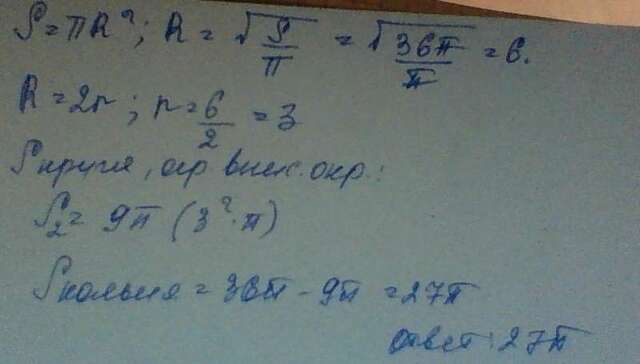 S = πR²; R = √(S/π) = √(36π/π) = 6.
R = 2r; r = 6/2 = 3
S круга, огр впис. окр.:
S₂ = 9π (3²·π)
S кольца = 36π - 9π = 27π
ответ: 27π